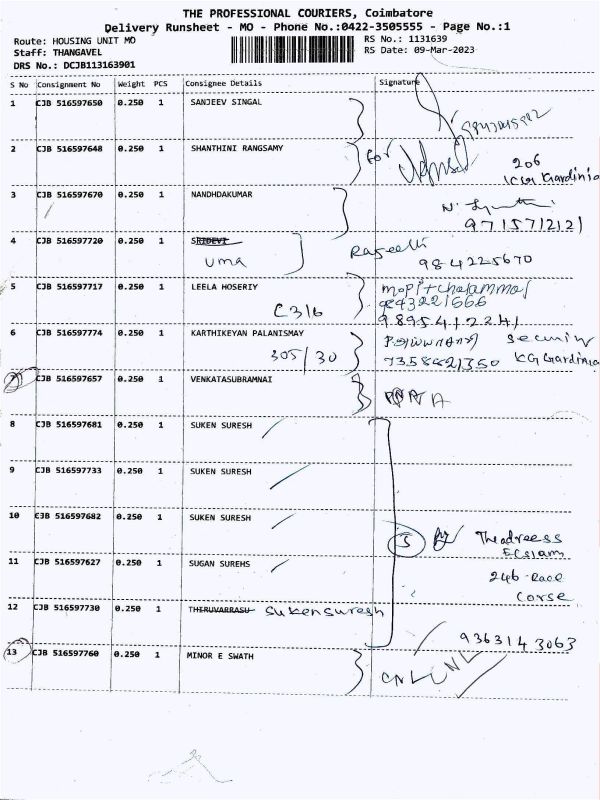 THE PROFESSIONAL COURIERS, Coimbatore
Delivery Runsheet - MO - Phone No.:0422-3505555 - Page No.:1
Route: HOUSING UNIT MO
RS No.: 1131639
Staff: THANGAVEL
RS Date: 09-Mar-2023
DRS No.: DCJB113163901
S No Consignment No Weight PCS Consignee Details Signature
1 CJB 516597650 0.250 1 SANJEEV SINGAL
2 CJB 516597648 0.250 1 SHANTHINI RANGSAMY for 206
KG Gardinia
3 CJB 516597670 0.250 1 NANDHDAKUMAR
9715712121
4 CJB 516597720 0.250 1 SRIDEVI
uma 984225670
5 CJB 516597717 0.250 1 LEELA HOSERIY
C316 9895412241
6 CJB 516597774 0.250 1 KARTHIKEYAN PALANISMAY
305/30 KG Gardinia
7 CJB 516597657 0.250 1 VENKATASUBRAMNAI
8 CJB 516597681 0.250 1 SUKEN SURESH
9 CJB 516597733 0.250 1 SUKEN SURESH
10 CJB 516597682 0.250 1 SUKEN SURESH
5
11 CJB 516597627 0.250 1 SUGAN SUREHS
246 Race
Corse
12 CJB 516597730 0.250 1 THERUVARRASU Sukensuresh
9363143063
13 CJB 516597760 0.250 1 MINOR E SWATH
CNL